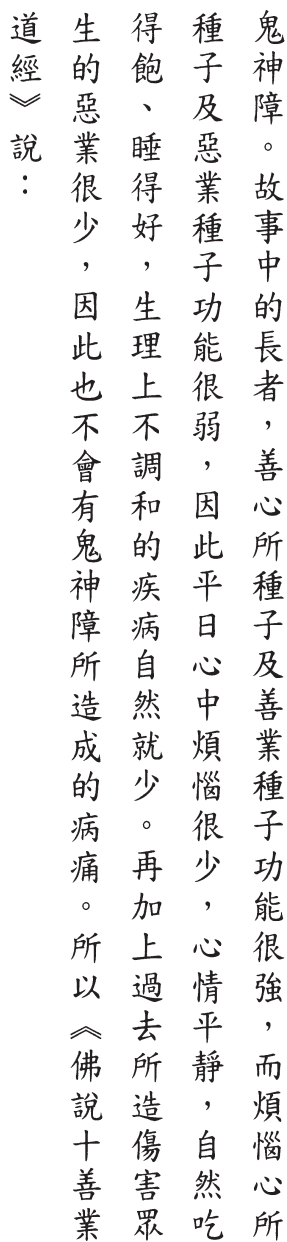 鬼神障。故事中的長者，善心所種子及善業種子功能很強，而煩惱心所
種子及惡業種子功能很弱，因此平日心中煩惱很少，心情平靜，自然吃
得飽、睡得好，生理上不調和的疾病自然就少。再加上過去所造傷害眾
生的惡業很少，因此也不會有鬼神障所造成的病痛。所以《佛說十善業
道經》說：